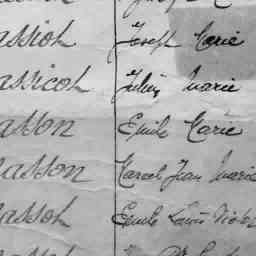 assioh Joseph Marie
assicoh Julien Marie
asson Emile Marie
asson Marcel Jean Marie
assoh Emile Louis